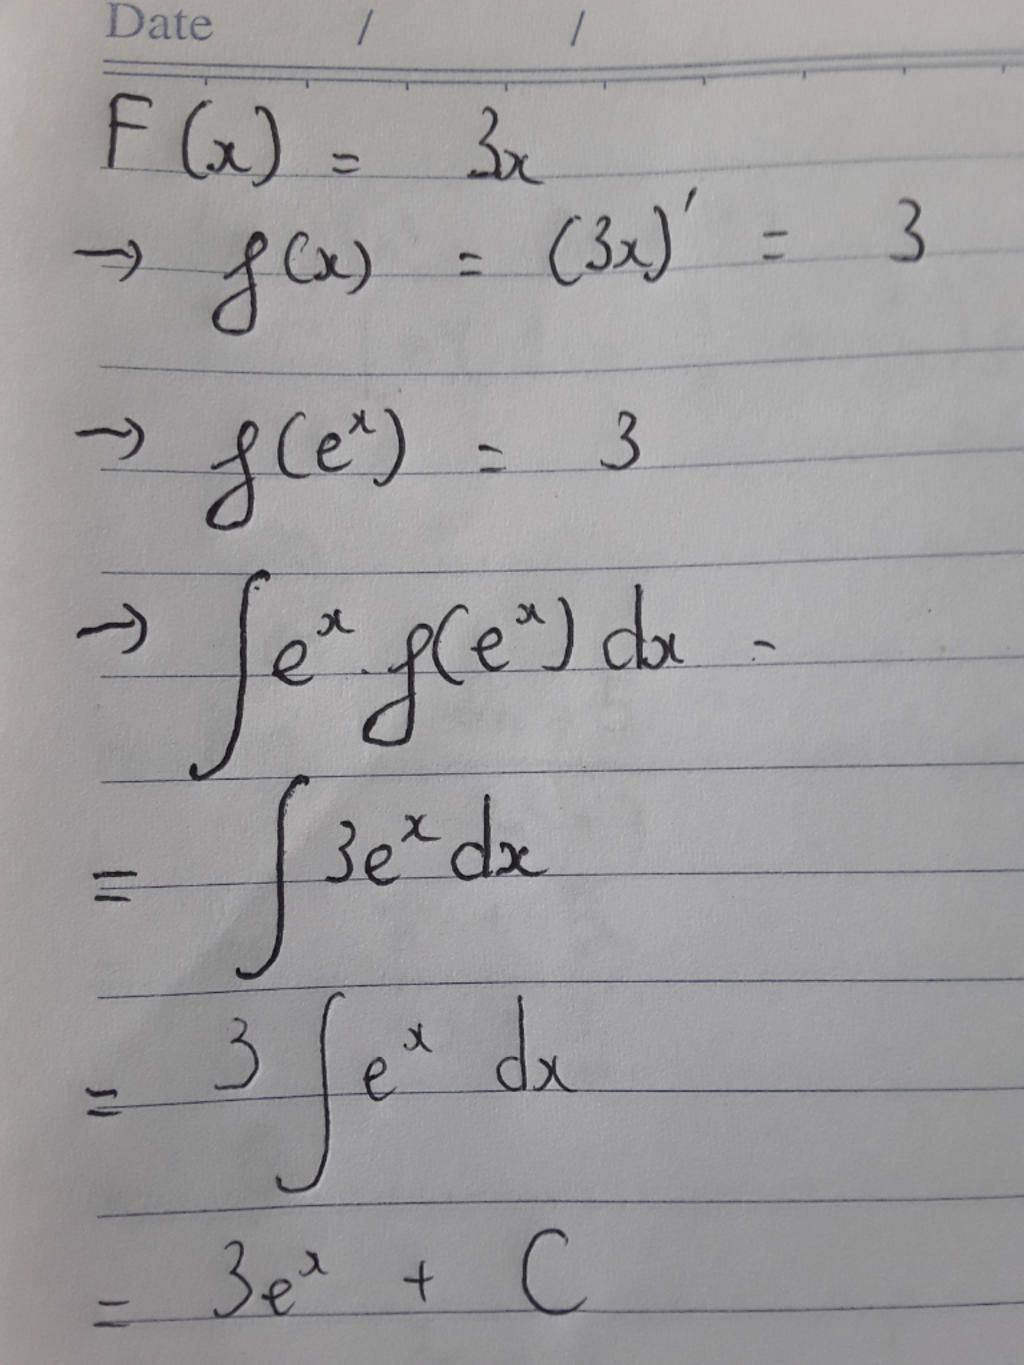 Date / /
F(x) = 3x
→ f(x) = (3x)' = 3
→ f(eˣ) = 3
→ ∫eˣ.f(eˣ) dx -
= ∫3eˣ dx
= 3∫eˣ dx
= 3eˣ + C